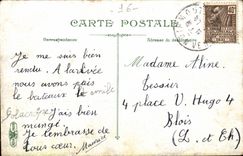 CARTE POSTALE
Correspondance
Je me suis bien
rendu. A l'arrivée
nous avons pris
le bateau
j'ai bien
mangé.
Je t'embrasse de
tous cœur. Maurice
Madame Aline
Tessier
4 place V. Hugo 4
Blois
(L. et Ch)